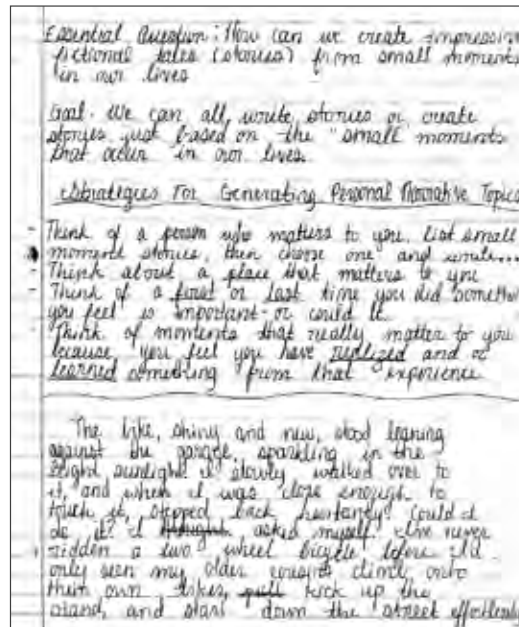 Essential Question: How can we create impressive
fictional tales (stories) from small moments
in our lives
Goal: We can all write stories or create
stories just based on the "small moments"
that occur in our lives.
Strategies For Generating Personal Narrative Topics
- Think of a person who matters to you, list small
moment stories, then choose one and write...
- Think about a place that matters to you
- Think of a first or last time you did something
you feel is important - or could
- Think of moments that really matter to you
because you feel you have realized and or
learned something from that experience
The bike, shiny and new, stood leaning
against the garage, sparkling in the
bright sunlight. I slowly walked over to
it, and when I was close enough to
touch it, stepped back hesitantly. Could I
do it? I asked myself. I've never
ridden a two wheel bicycle before. I'd
only seen my older cousins climb onto
their own bikes, kick up the
stand, and start down the street effortlessly